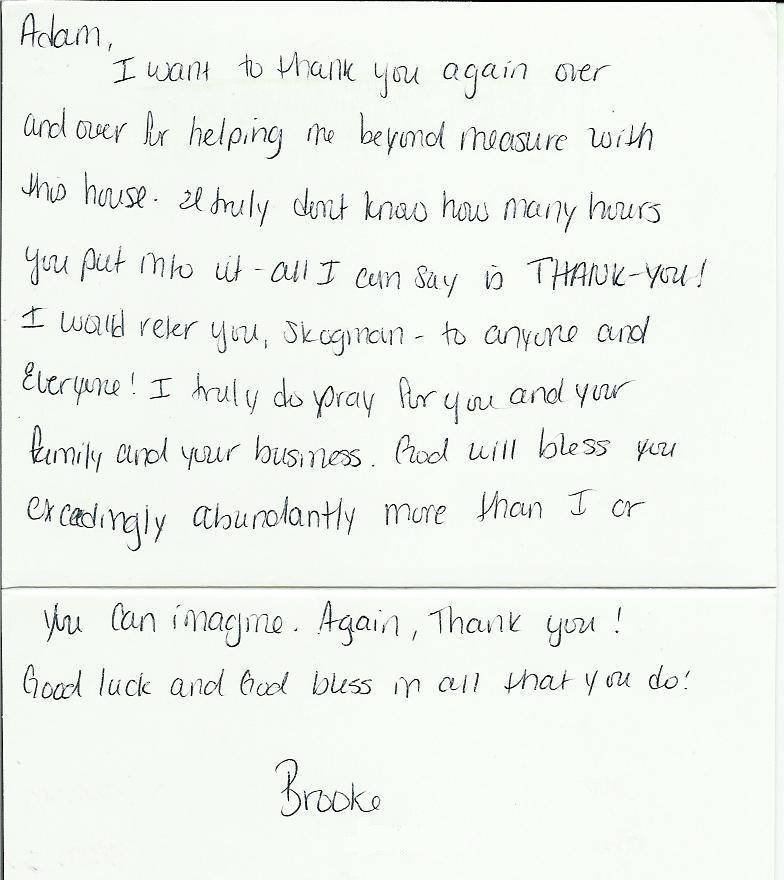 Adam,
I want to thank you again over
and over for helping me beyond measure with
this house. I truly don't know how many hours
you put into it - all I can say is THANK-YOU!
I would refer you, Skogman - to anyone and
everyone! I truly do pray for you and your
family and your business. God will bless you
excedingly abundantly more than I or
you can imagine. Again, Thank you!
Good luck and God bless in all that you do!
Brooke